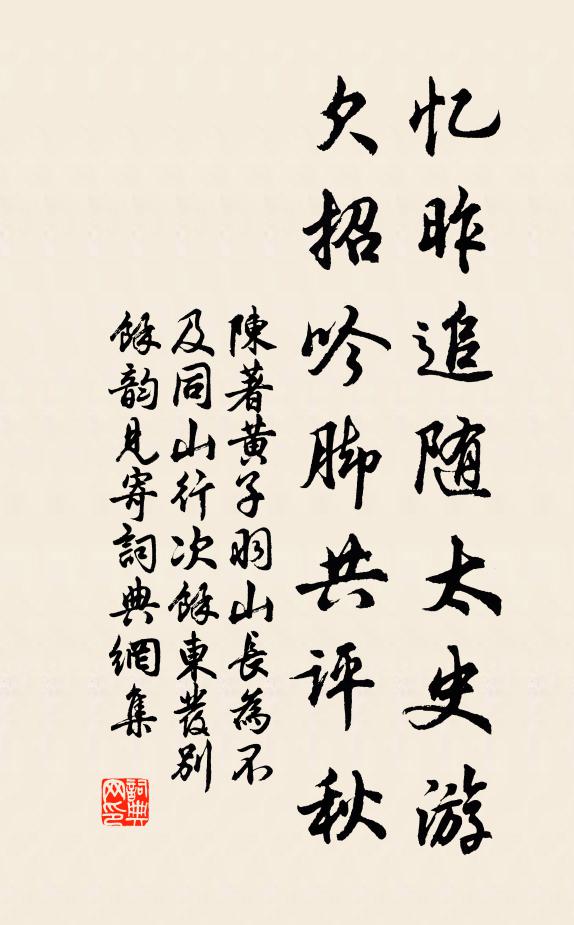 忆昨追随太史游
欠招吟脚共评秋
陳著黄子羽山長為不
及同山行次餘東發别
餘韵見寄詞典網集
詞典網印